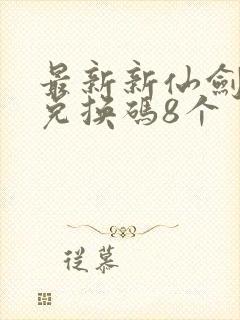 最新新仙劍
兑换碼8个
從慕